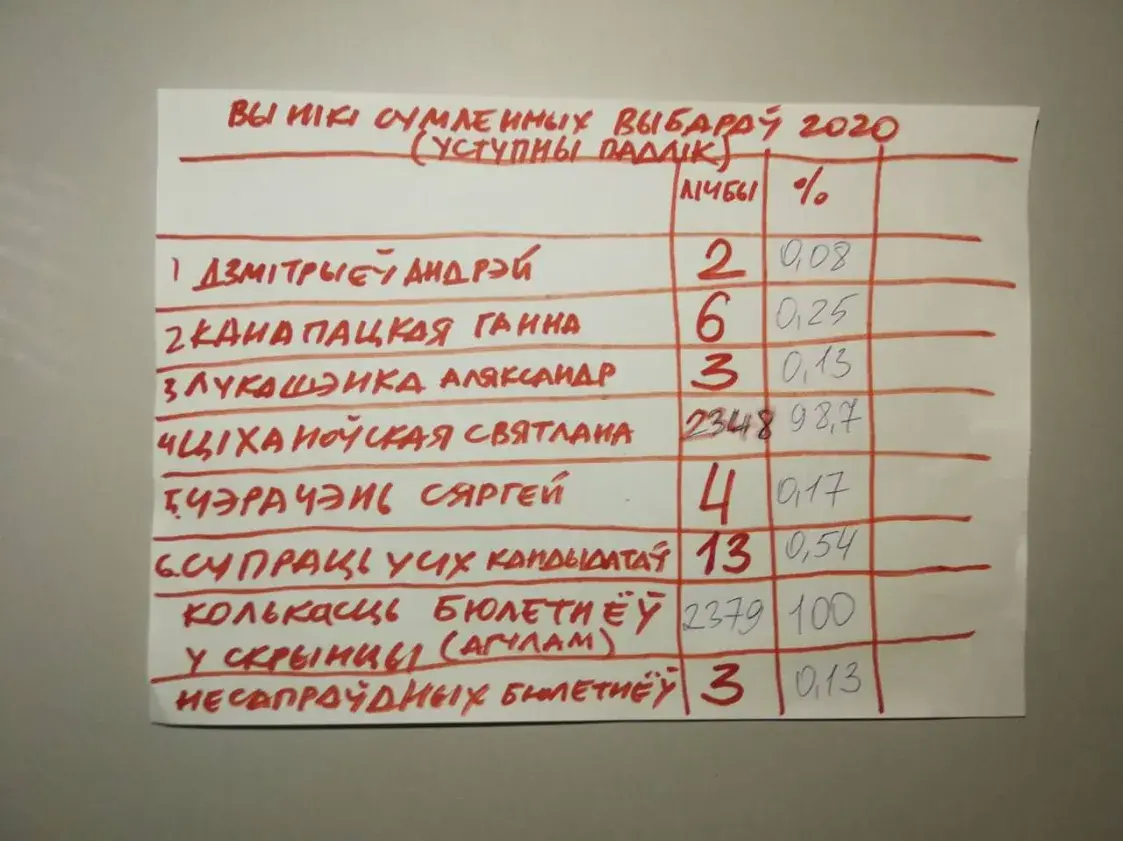 ВЫНІКІ СУМЛЕННЫХ ВЫБАРАЎ 2020
(УСТУПНЫ ПАДЛІК)
ЛІЧБЫ %
1 ДЗМІТРЫЕЎ АНДРЭЙ 2 0,08
2 КАНАПАЦКАЯ ГАННА 6 0,25
3 ЛУКАШЭНКА АЛЯКСАНДР 3 0,13
4 ЦІХАНОЎСКАЯ СВЯТЛАНА 2348 98,7
5. ЧЭРАЧЭНЬ СЯРГЕЙ 4 0,17
6. СУПРАЦЬ УСІХ КАНДЫДАТАЎ 13 0,54
КОЛЬКАСЦЬ БЮЛЕТНЕЎ 2379 100
У СКРЫНЦЫ (АГУЛАМ)
НЕСАПРАЎДНЫХ БЮЛЕТНЁЎ 3 0,13